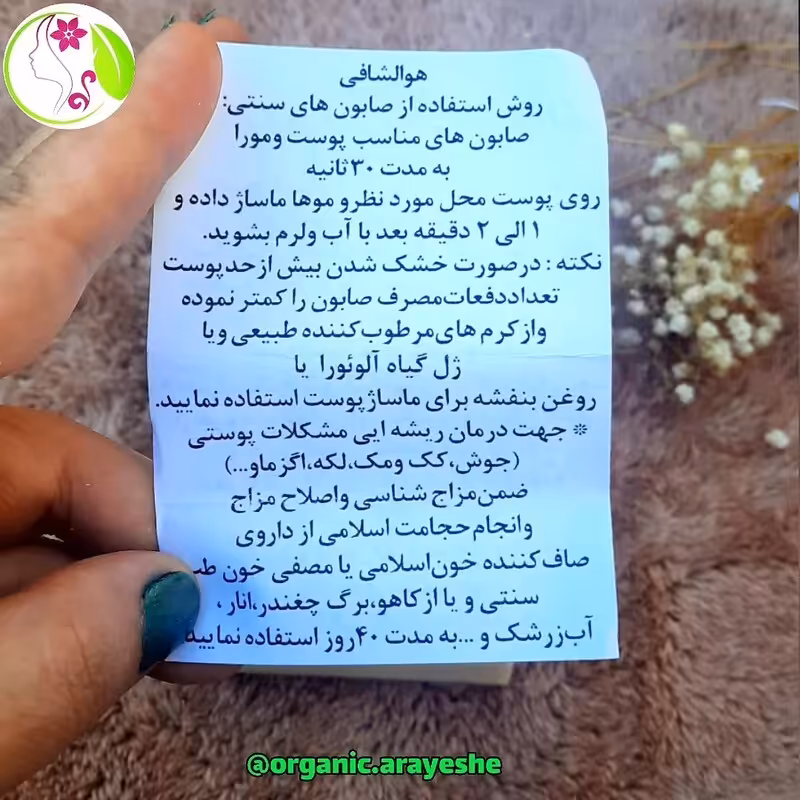 هوالشافی
روش استفاده از صابون های سنتی:
صابون های مناسب پوست ومورا
به مدت ۳۰ثانیه
روی پوست محل مورد نظرو موها ماساژ داده و
۱ الی ۲ دقیقه بعد با آب ولرم بشوید.
نکته : درصورت خشک شدن بیش ازحدپوست
تعداددفعات‌مصرف صابون را کمتر نموده
وازکرم های‌مرطوب‌کننده طبیعی ویا
ژل گیاه آلوئورا یا
روغن بنفشه برای ماساژپوست استفاده نمایید.
* جهت درمان ریشه ایی مشکلات پوستی
(جوش،کک ومک،لکه،اگزماو...)
ضمن‌مزاج شناسی واصلاح مزاج
وانجام‌حجامت اسلامی از داروی
صاف‌کننده خون‌اسلامی یا مصفی خون
سنتی و یا ازکاهو،برگ چغندر،انار ،
آب‌زرشک و ...به مدت ۴۰روز استفاده نمایید
@organic.arayeshe